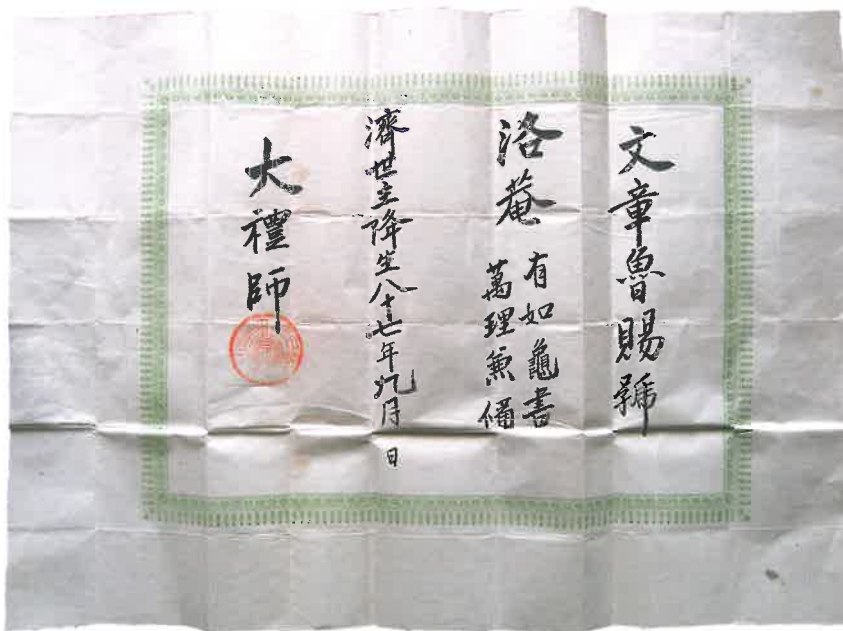 文章魯賜號
洛菴
有如龜書
萬理兼備
濟世主降生八十七年九月 日
大禮師